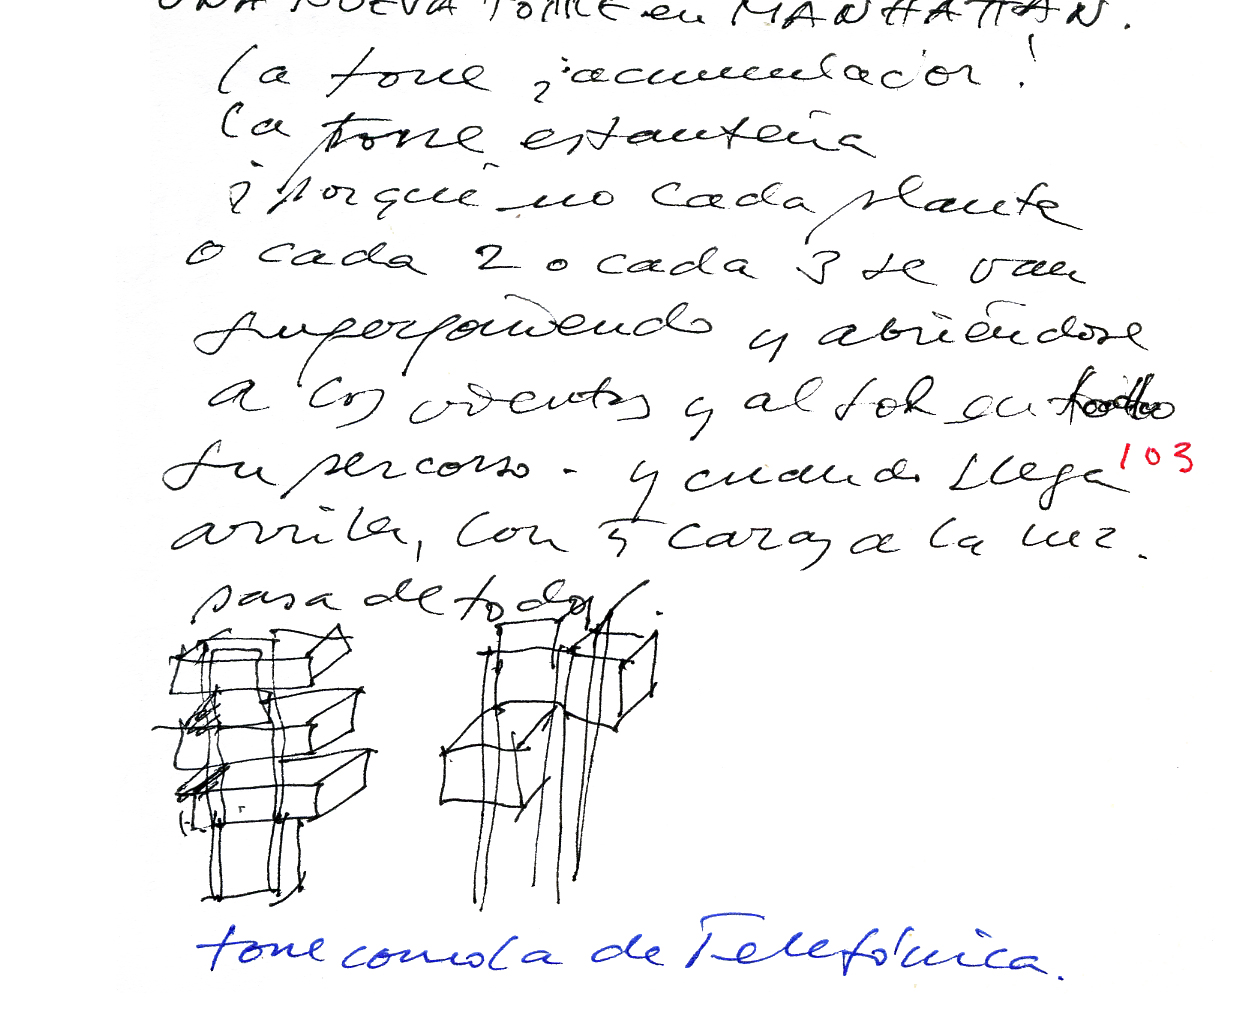 UNA NUEVA TORRE en MANHATTAN.
La torre ¡acumulador!
La torre estantería
¿porqué no cada planta
o cada 2 o cada 3 se van
superponiendo y abriéndose
a los vientos y al sol en todo
su percorso - y cuando llega 103
arriba, con 5 caras a la luz.
pasa de todo!.
torre como la de Telefónica.